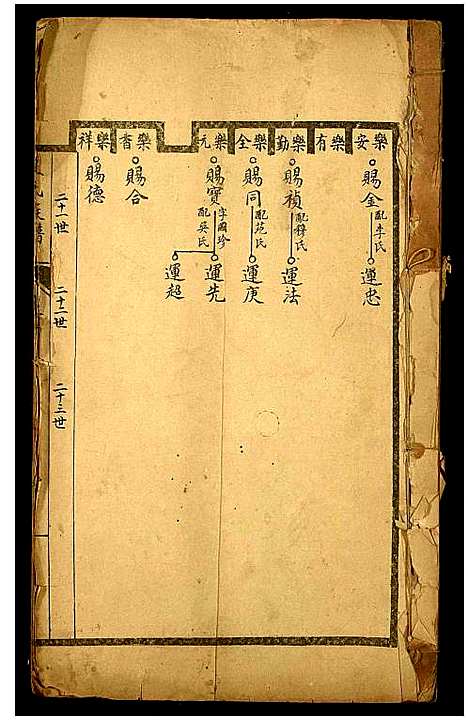 樂安
樂有
樂勤
樂全
樂元
樂書
樂祥
賜金
配李氏
運忠
賜禎
配穆氏
運法
賜同
配范氏
運庚
賜寶
字國珍
配吳氏
運先
運超
賜合
賜德
二十一世
二十二世
二十三世